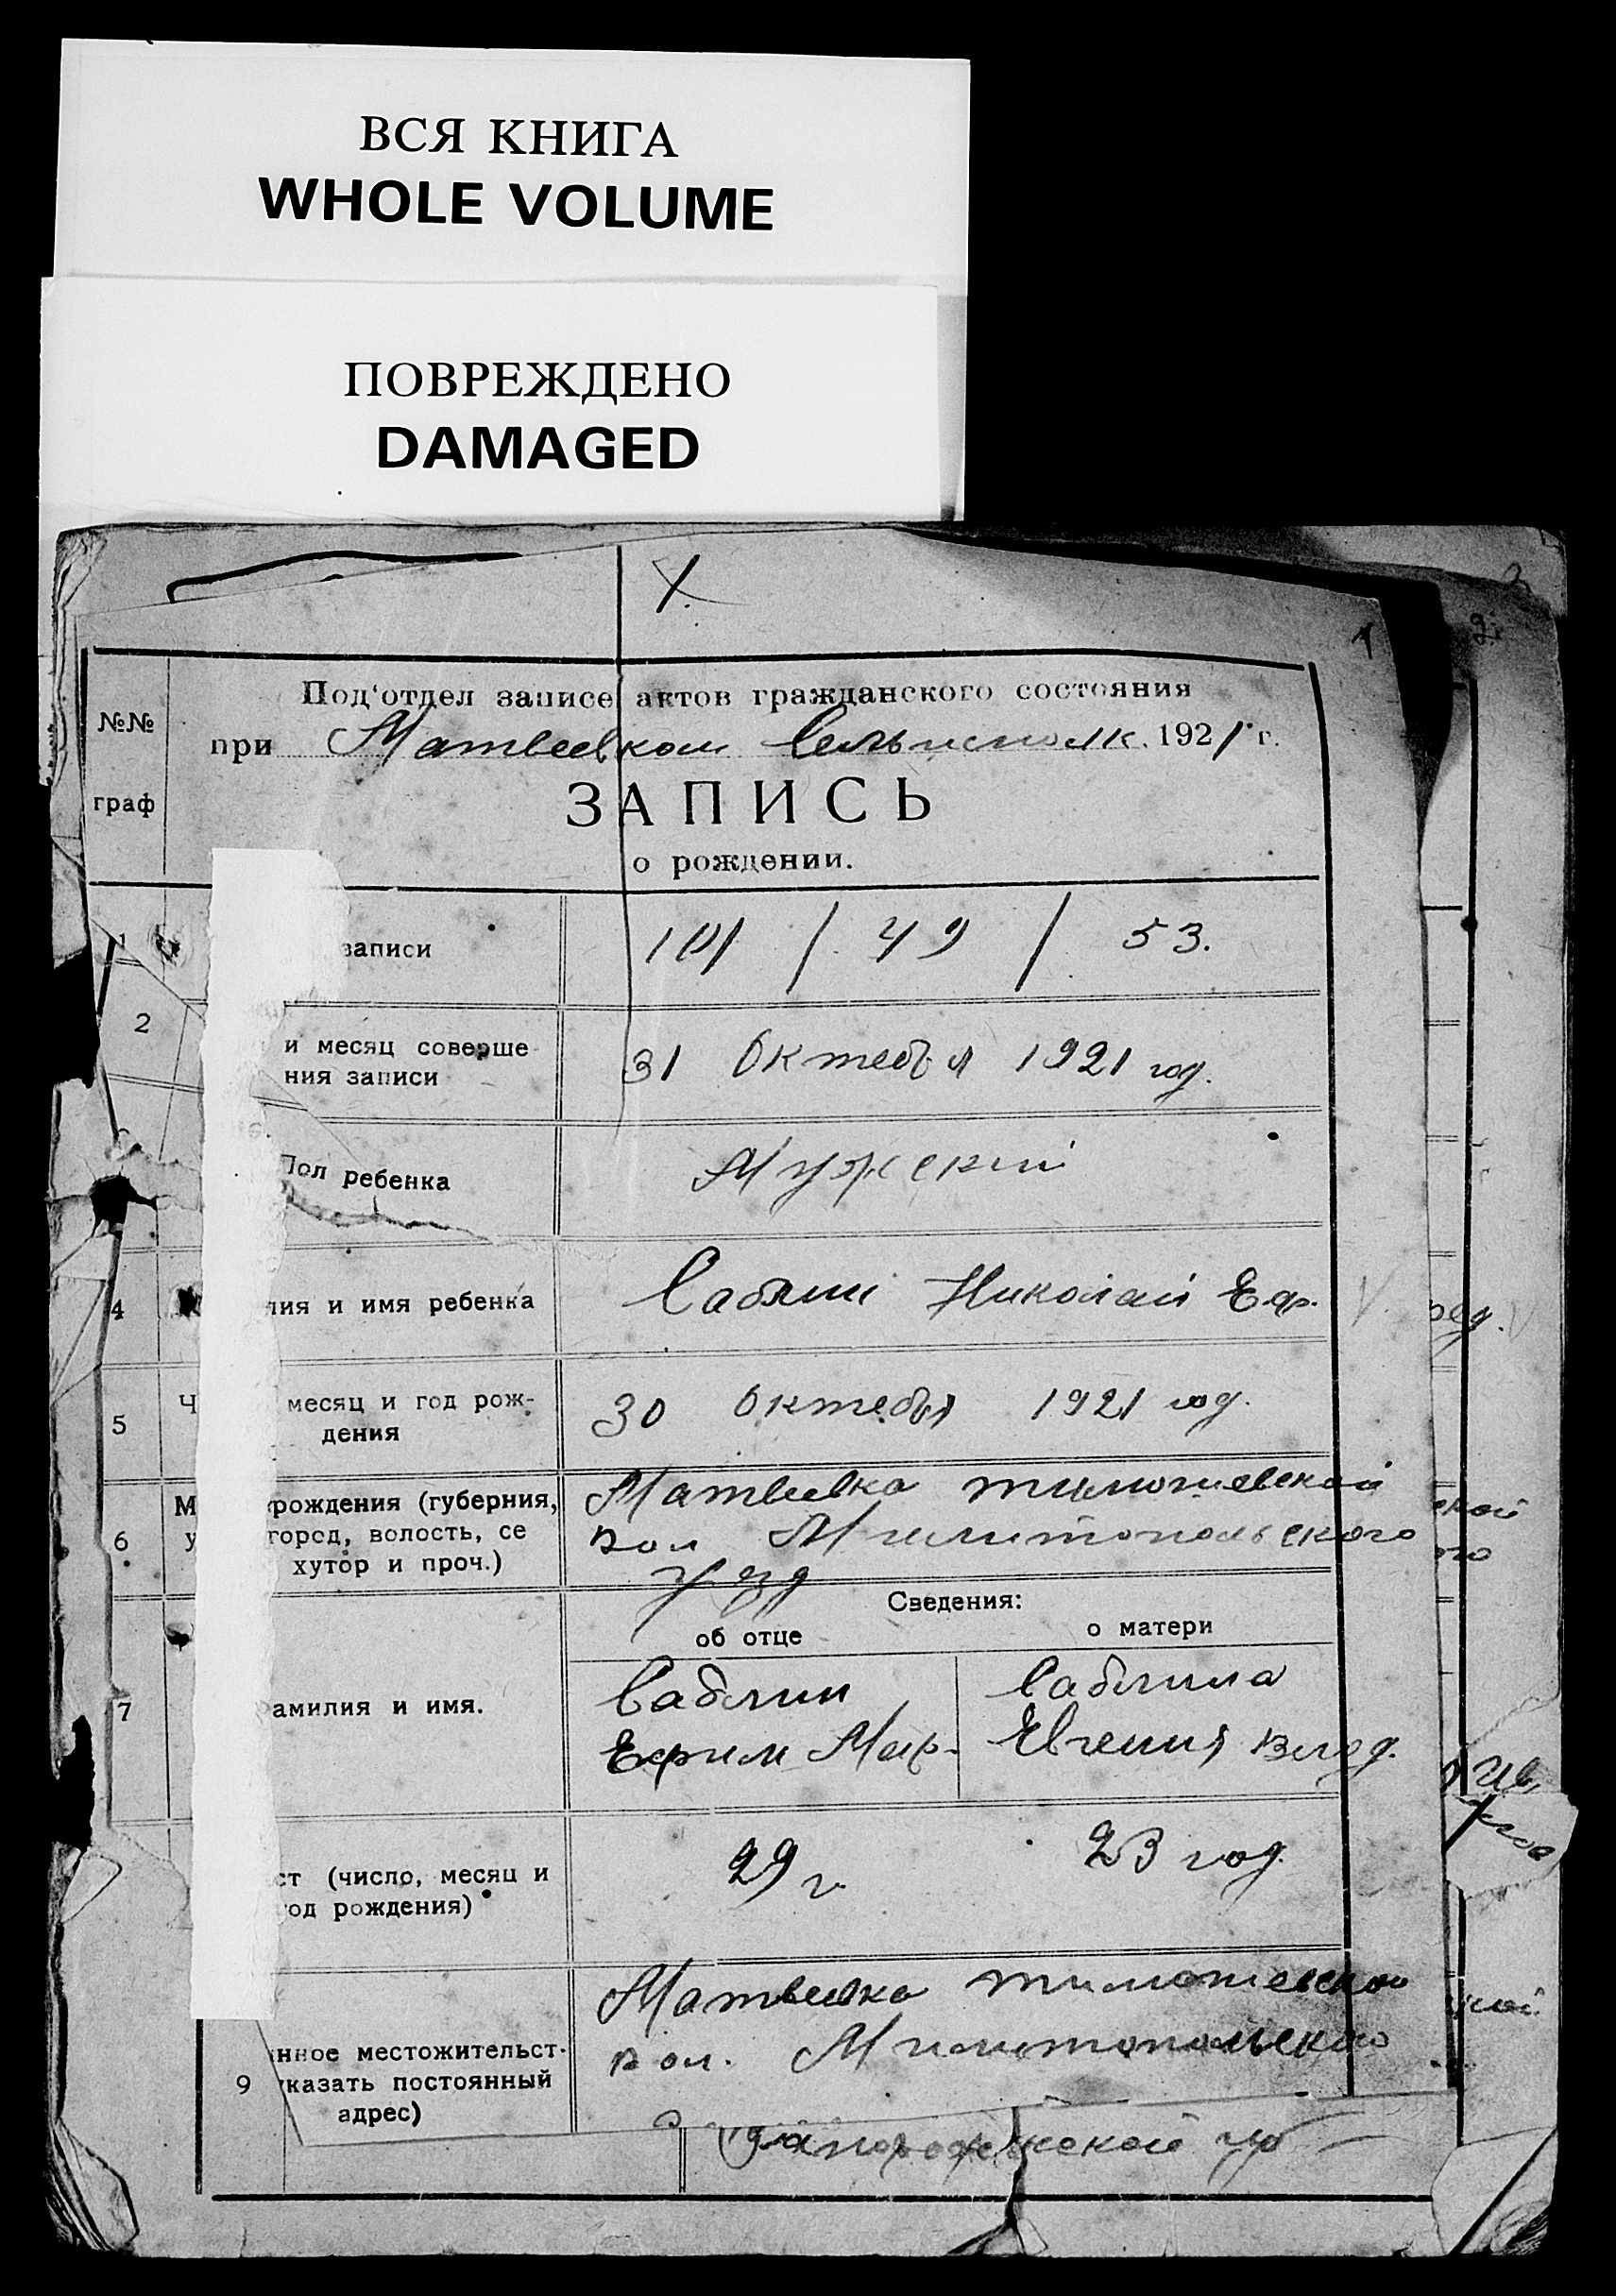 ВСЯ КНИГА
WHOLE VOLUME
ПОВРЕЖДЕНО
DAMAGED
X.
1
2.
Под'отдел записе актов гражданского состояния
№№
граф
при Матвеевком Сельисполк. 1921 г.
ЗАПИСЬ
о рождении.
1 записи 101 / 49 / 53.
2 и месяц соверше
ния записи
31 Октебья 1921 год.
Пол ребенка Мужский
4 лия и имя ребенка Саблин Николай Еф.
5 Ч месяц и год рож-
дения
30 октебья 1921 год.
6 М рождения (губерния,
у город, волость, се
хутор и проч.)
Матвеевка тимошевской
вол Милитопольского
узд
Сведения:
об отце о матери
7 амилия и имя.
Саблин Саблина
Ефрим Мар. Евгения Влад.
ст (число, месяц и
год рождения)
29 г. 23 год.
9 нное местожительст-
указать постоянный
адрес)
Матвеевка тимошевской
вол. Милитопольского
Запорожской гу